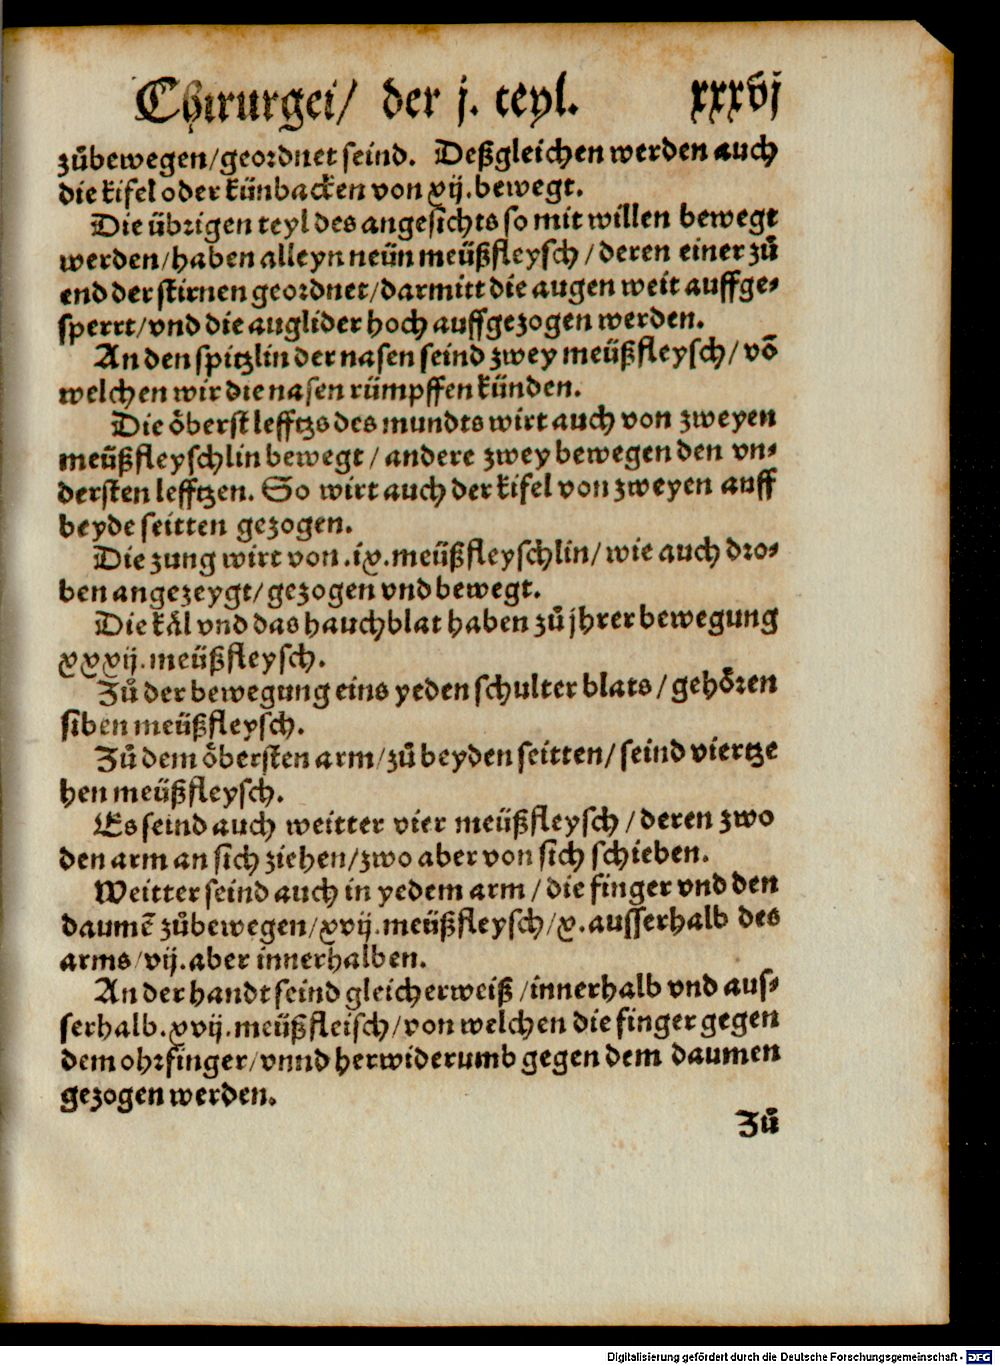 Chirurgei/ der j. teyl. xxxvj
zůbewegen/geordnet seind. Deßgleichen werden auch
die kifel oder künbacken von xij. bewegt.
Die übrigen teyl des angesichts so mit willen bewegt
werden/haben alleyn neün meüßfleysch/deren einer zů
end der stirnen geordnet/darmitt die augen weit auffge⸗
sperrt/vnd die auglider hoch auffgezogen werden.
An den spitzlin der nasen seind zwey meüßfleysch/võ
welchen wir die nasen rümpffen künden.
Die öberst lefftzs des mundts wirt auch von zweyen
meüßfleyschlin bewegt/andere zwey bewegen den vn⸗
dersten lefftzen. So wirt auch der kifel von zweyen auff
beyde seitten gezogen.
Die zung wirt von .ix. meüßfleyschlin/wie auch dro⸗
ben angezeygt/gezogen vnd bewegt.
Die käl vnd das hauchblat haben zů jhrer bewegung
xxxij. meüßfleysch.
Zů der bewegung eins yeden schulter blats/gehören
siben meüßfleysch.
Zů dem öbersten arm/zů beyden seitten/seind viertze
hen meüßfleysch.
Es seind auch weitter vier meüßfleysch/deren zwo
den arm an sich ziehen/zwo aber von sich schieben.
Weitter seind auch in yedem arm/die finger vnd den
daumẽ zůbewegen/xvij. meüßfleysch/x. ausserhalb des
arms/vij. aber innerhalben.
An der handt seind gleicherweiß/innerhalb vnd aus⸗
serhalb. xvij. meüßfleisch/von welchen die finger gegen
dem ohrfinger/vnnd herwiderumb gegen dem daumen
gezogen werden.
Zů
Digitalisierung gefördert durch die Deutsche Forschungsgemeinschaft - DFG